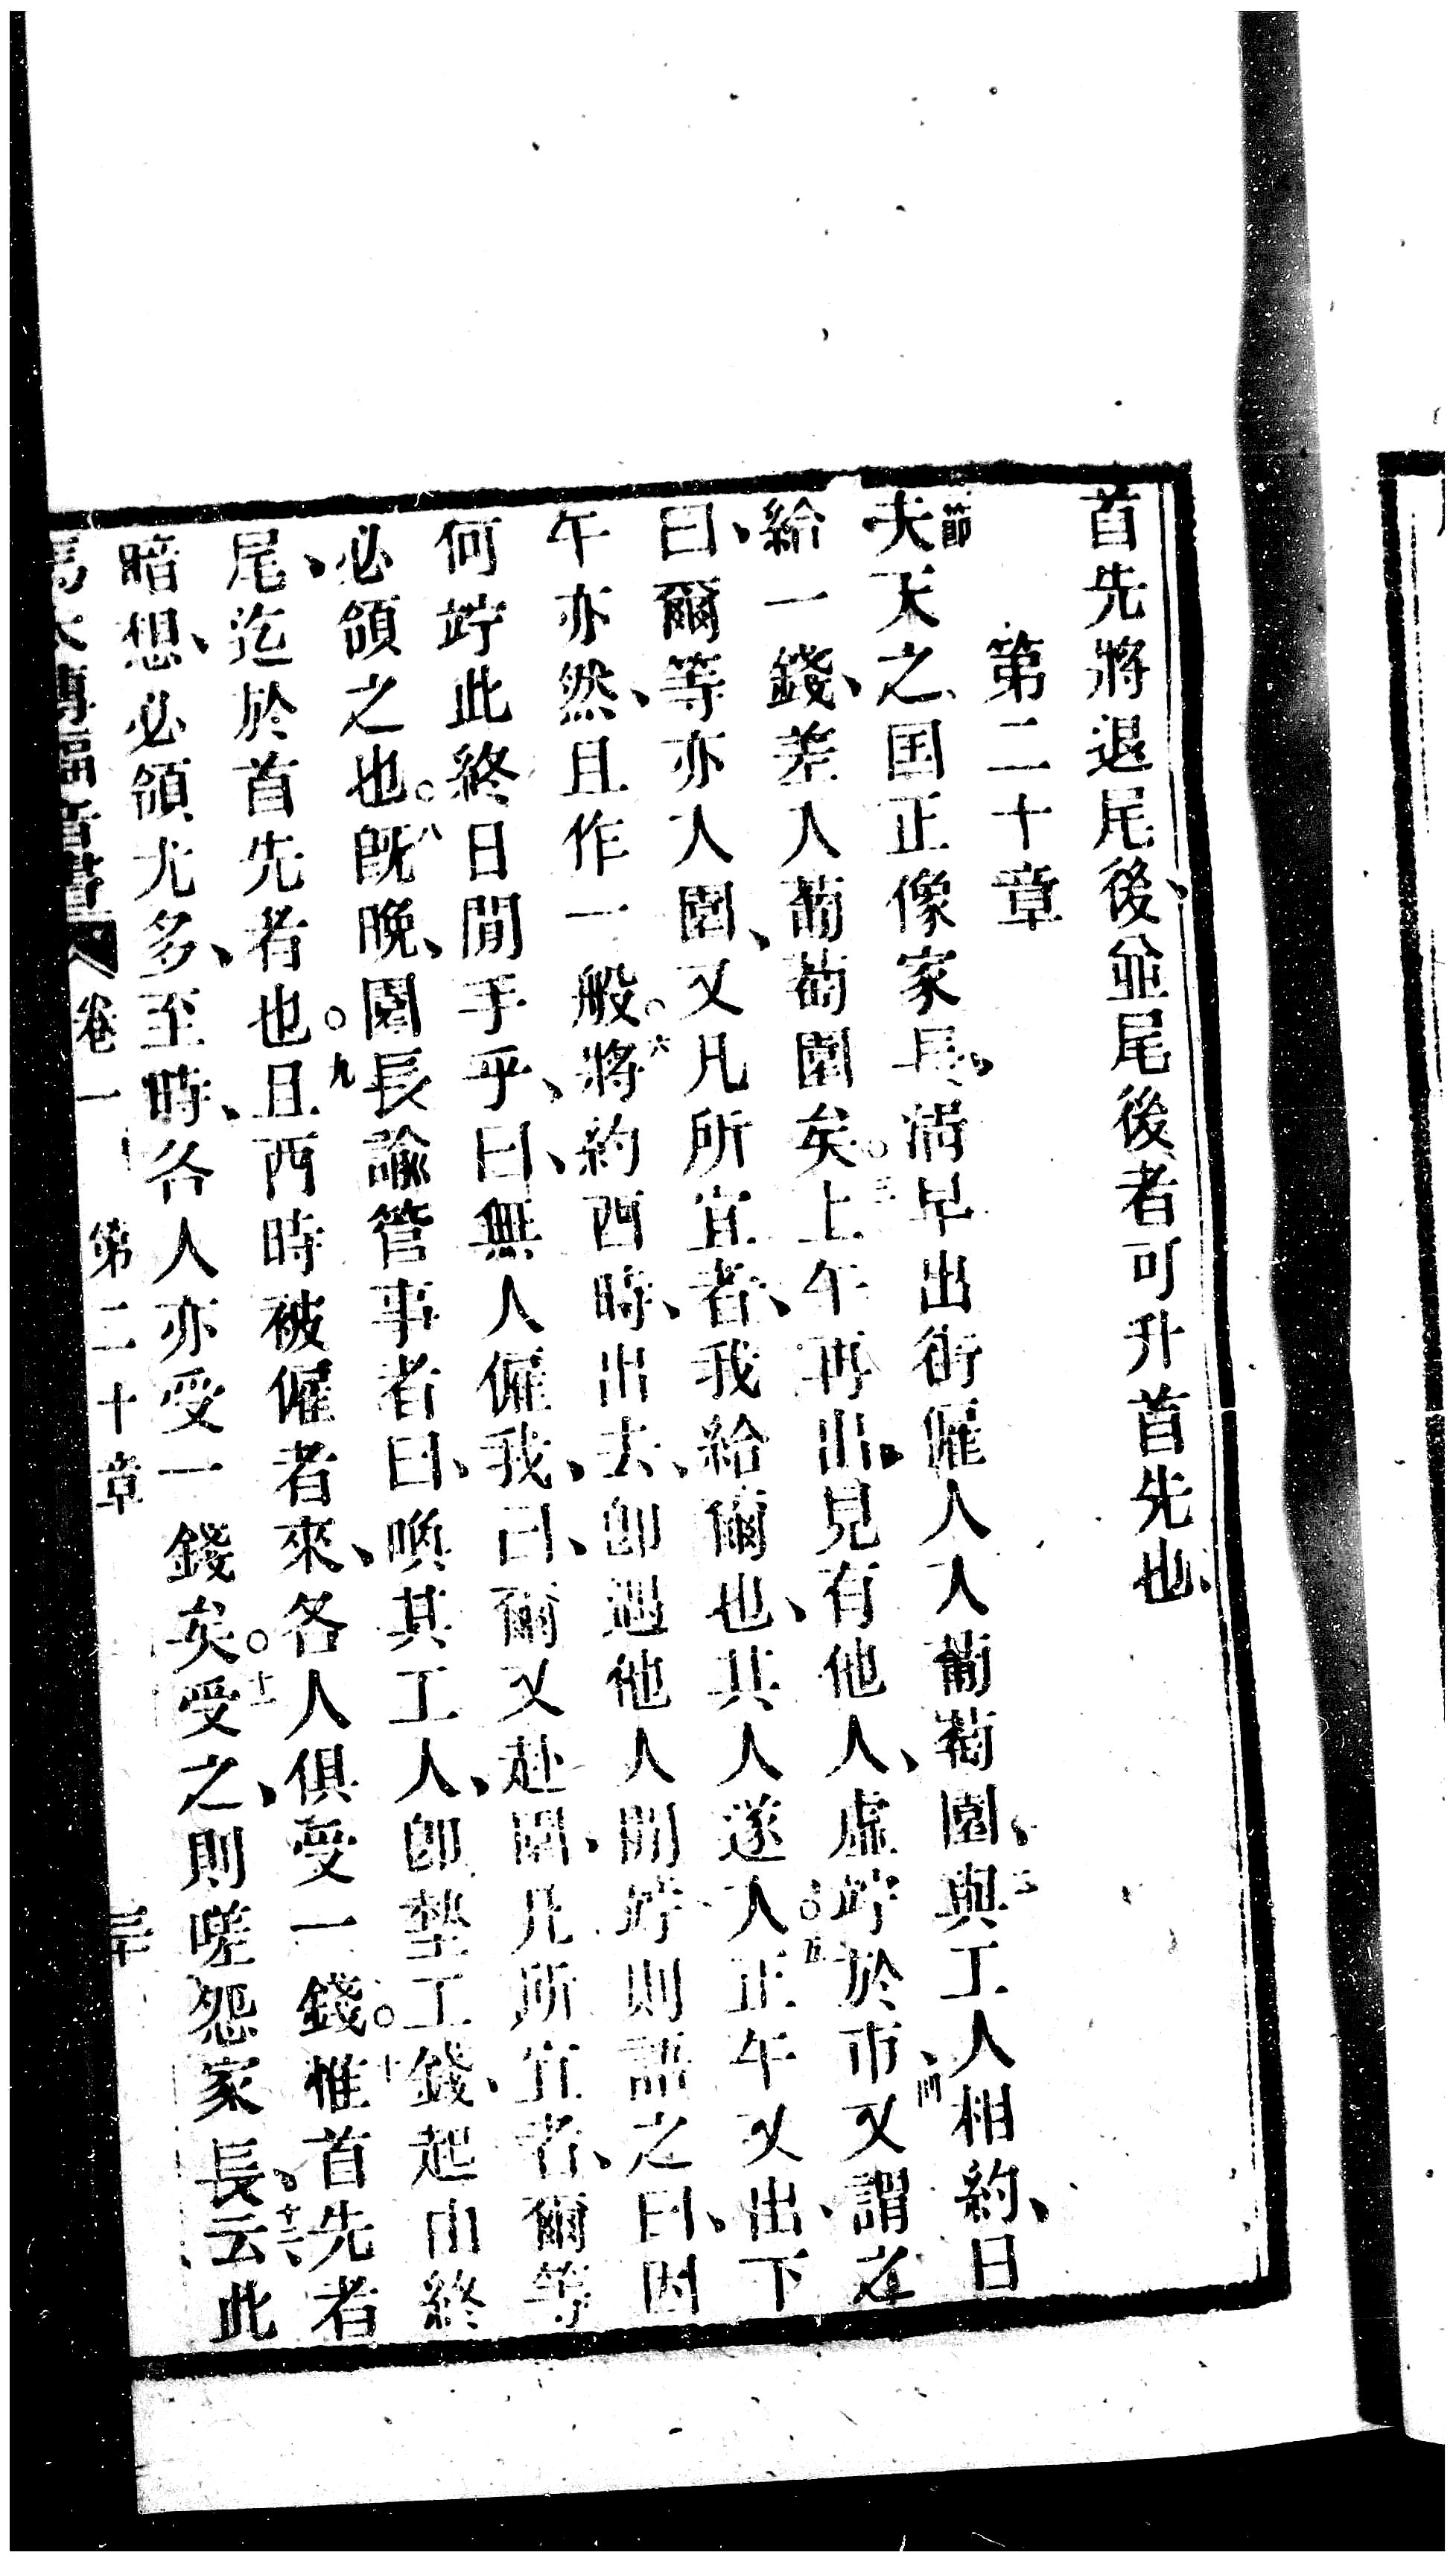 首先將退尾後、並尾後者可升首先也、
第二十章
一節夫天之国正像家長、淸早出街僱人入葡萄園、二與工人相約、日
給一錢、差入葡萄園矣○三上午再出、見有他人、虛竚於市、四又謂之
曰、爾等亦入園、又凡所宜者、我給爾也、其人遂入○五正午又出、下
午亦然、且作一般○六將約酉時、出去、卽遇他人閒竚則語之曰、因
何竚此終日閒手乎、曰、無人僱我、曰、爾又赴園、凡所宜者、爾等
必領之也○八旣晚、園長諭管事者曰、喚其工人、卽墊工錢、起由終
尾、迄於首先者也○九且酉時被僱者來、各人俱受一錢○十惟首先者
暗想、必領尤多、至時、各人亦受一錢矣○十一受之、則嗟怨家長、十二云、此
馬太傳福音書 卷一 第二十章